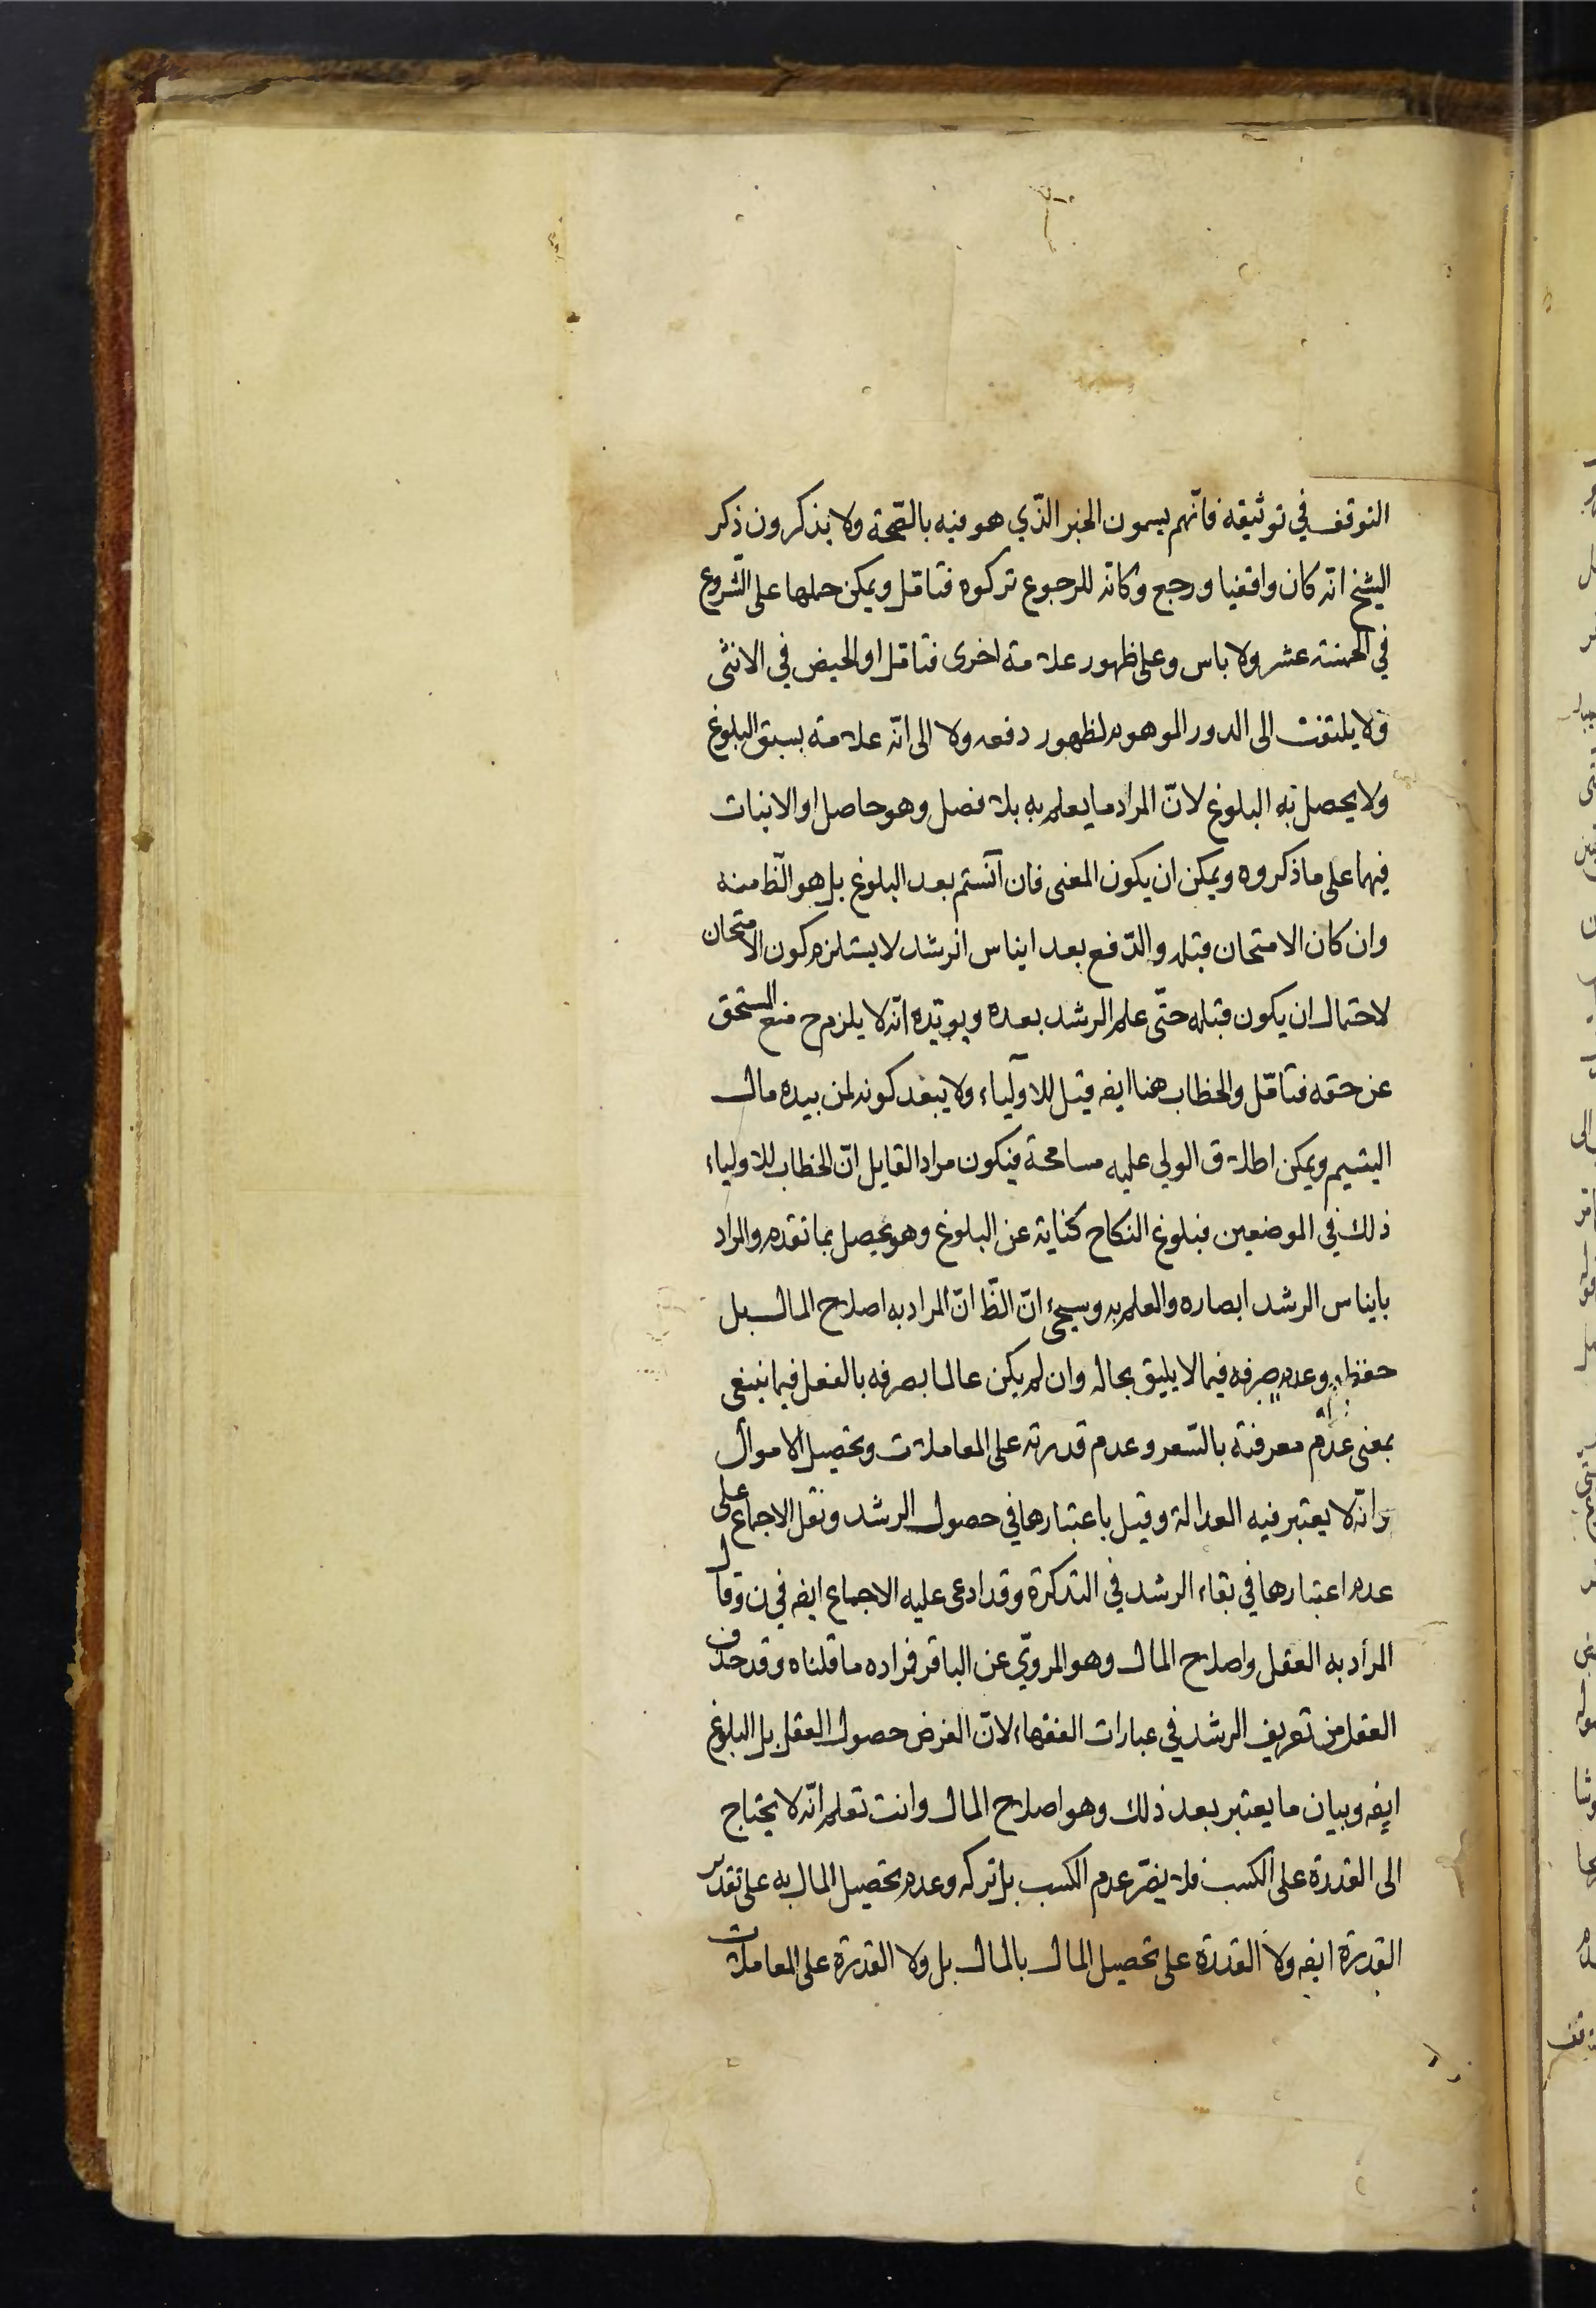 التوقف في توثيقه فانّهم يسمون الخبر الذّي هو فيه بالصّحة ولا يذكرون ذكر
الشيخ انّه كان واقفيا ورجع وكانّه للرجوع تركوه فتامّل ويمكن حملها على الشّروع
في الخمسة عشر ولا باس وعلى ظهور علامة اخرى فتامّل او الحيض في الانثى
ولا يلتفت الى الدور الموهوم لظهور دفعه ولا الى انّه علامة بسبق البلوغ
ولا يحصل به البلوغ لانّ المراد ما يعلم به بلا فصل وهو حاصل او الانبات
فيهما على ما ذكروه ويمكن ان يكون المعنى فان آنستم بعد البلوغ بل هو الظّ منه
وان كان الامتحان قبله والدّفع بعد ايناس الرشد لا يستلزم كون الامتحان
لاحتمال ان يكون قبله حتّى علم الرشد بعده ويويّده انّه لا يلزم ح منع المستحق
عن حقه فتامّل والخطاب هنا ايضه قيل للاولياء ولا يبعد كونه لمن بيده مال
اليتيم ويمكن اطلاق الولي عليه مسامحة فيكون مراد القايل انّ الخطاب للاولياء
ذلك في الموضعين فبلوغ النكاح كناية عن البلوغ وهو يحصل بما تقدم والمراد
بايناس الرشد ابصاره والعلم به وسيجئ انّ الظّ انّ المراد به اصلاح المال بل
حفظه وعدم صرفه فيما لا يليق بحاله وان لم يكن عالما بصرفه بالفعل فيما ينبغى
بمعنى عدم معرفته بالسّعر وعدم قدرته على المعاملات وتحصيل الاموال
وانّه لا يعتبر فيه العدالة وقيل باعتبارها في حصول الرشد ونقل الاجماع على
عدم اعتبارها في بقاء الرشد في التذكرة وقد ادعى عليه الاجماع ايضه في ن وقال
المراد به العقل واصلاح المال وهو المرويّ عن الباقر فمراده ما قلناه وقد حذف
العقل من تعريف الرشد في عبارات الفقهاء لانّ الغرض حصول العقل بل البلوغ
ايضه وبيان ما يعتبر بعد ذلك وهو اصلاح المال وانت تعلم انّه لا يحتاج
الى القدرة على الكسب فلا يضرّ عدم الكسب بل تركه وعدم تحصيل المال به على تقدير
القدرة ايضه ولا القدرة على تحصيل المال بالمال بل ولا القدرة على المعاملات